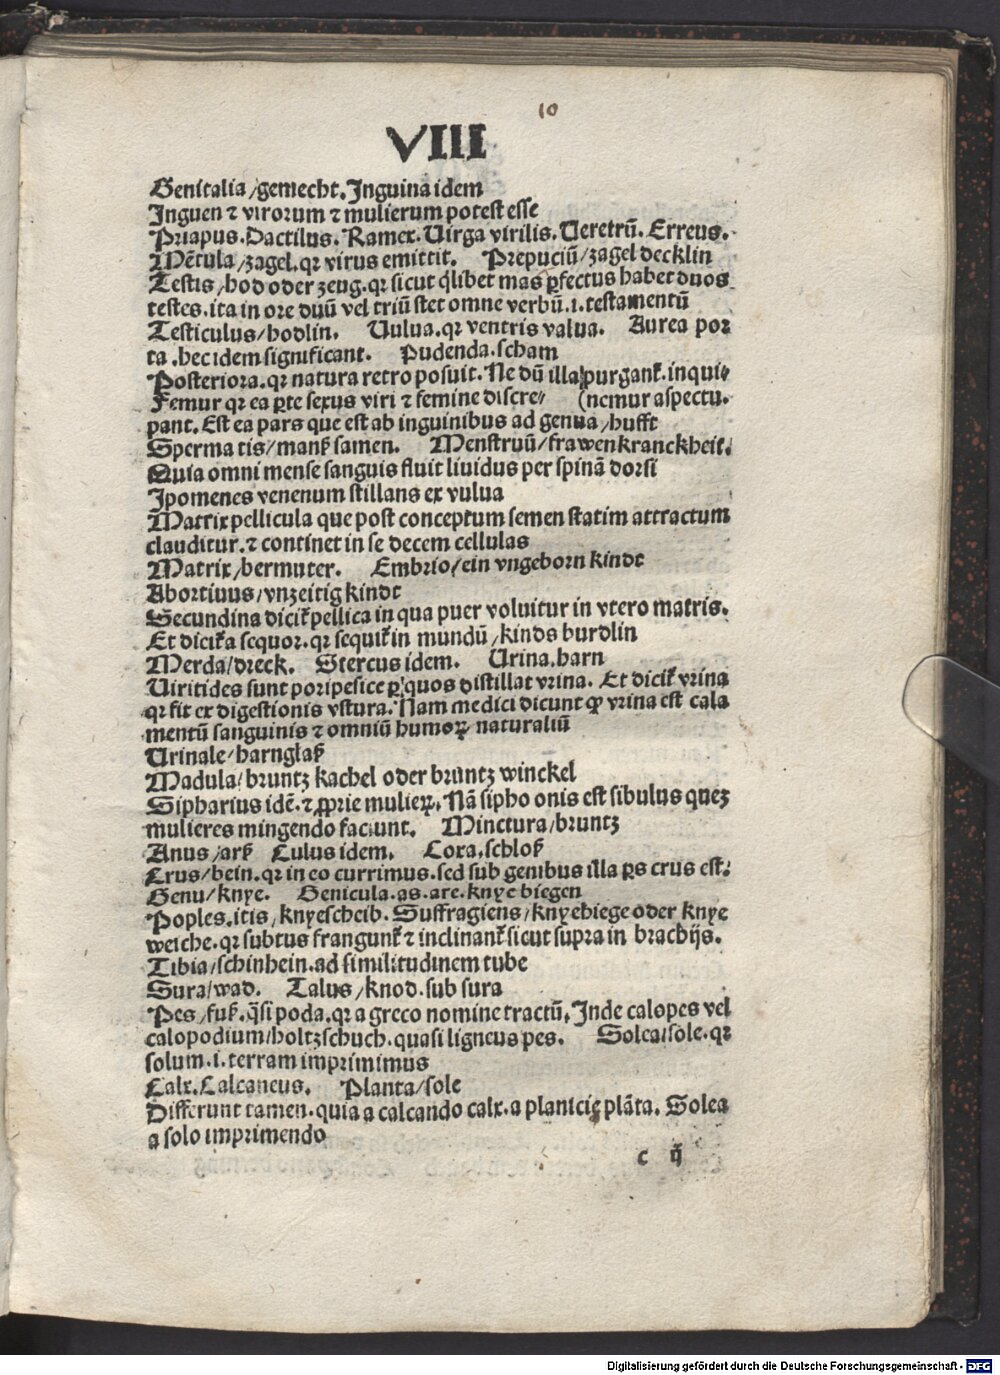 10
VIII
Genitalia/gemecht. Inguina idem
Inguen ⁊ virorum ⁊ mulierum potest esse
Priapus. Dactilus. Ramex. Uirga virilis. Ueretrū. Erreus.
Mētula/zagel. qꝛ virus emittit. Prepuciū/zagel decklin
Testis/hod oder zeug. qꝛ sicut qlibet mas ꝑfectus habet duos
testes. ita in ore duū vel triū stet omne verbū .i. testamentū
Testiculus/hodlin. Uulua. qꝛ ventris valua. Aurea por
ta. hec idem significant. Pudenda. scham
Posteriora. qꝛ natura retro posuit. Ne dū illa purgant᷑. inqui⸗
Femur qꝛ ea ꝑte sexus viri ⁊ femine discre⸗ (nemur aspectu.
pant. Est ea pars que est ab inguinibus ad genua/hufft
Sperma tis/manß samen. Menstruū/frawen kranckheit.
Quia omni mense sanguis fluit liuidus per spinā dorsi
Ipomenes venenum stillans ex vulua
Matrix pellicula que post conceptum semen statim attractum
clauditur. ⁊ continet in se decem cellulas
Matrix/bermuter. Embrio/ein vngeborn kindt
Abortiuus/vnzeitig kindt
Secundina dicit᷑ pellica in qua puer voluitur in vtero matris.
Et dicit᷑ a sequor. qꝛ sequit᷑ in mundū/kinds burdlin
Merda/dreck. Stercus idem. Urina. harn
Uiritides sunt pori pesice ꝑ quos distillat vrina. Et dicit᷑ vrina
qꝛ fit ex digestionis vstura. Nam medici dicunt ꝙ vrina est cala
mentū sanguinis ⁊ omniū humoꝝ naturaliū
Urinale/harnglaß
Madula/bruntz kachel oder bruntz winckel
Sipharius idē. ⁊ ꝓprie mulieꝝ. Nā sipho onis est sibulus quez
mulieres mingendo faciunt. Minctura/bruntz
Anus/arß Culus idem. Coxa. schloß
Crus/bein. qꝛ in eo currimus. sed sub genibus illa ꝑs crus est.
Genu/knye. Genicula. as. are. knye biegen
Poples. itis/knyescheib. Suffragiens/knyebiege oder knye
weiche. qꝛ subtus frangunt᷑ ⁊ inclinant᷑ sicut supra in brachijs.
Tibia/schinbein. ad similitudinem tube
Sura/wad. Talus/knod. sub sura
Pes/fuß. q̄si poda. qꝛ a greco nomine tractū. Inde calopes vel
calopodium/holtzschuch. quasi ligneus pes. Solea/sole. qꝛ
solum .i. terram imprimimus
Calx. Calcaneus. Planta/sole
Differunt tamen. quia a calcando calx. a planicie plāta. Solea
a solo imprimendo
c ij
Digitalisierung gefördert durch die Deutsche Forschungsgemeinschaft - DFG